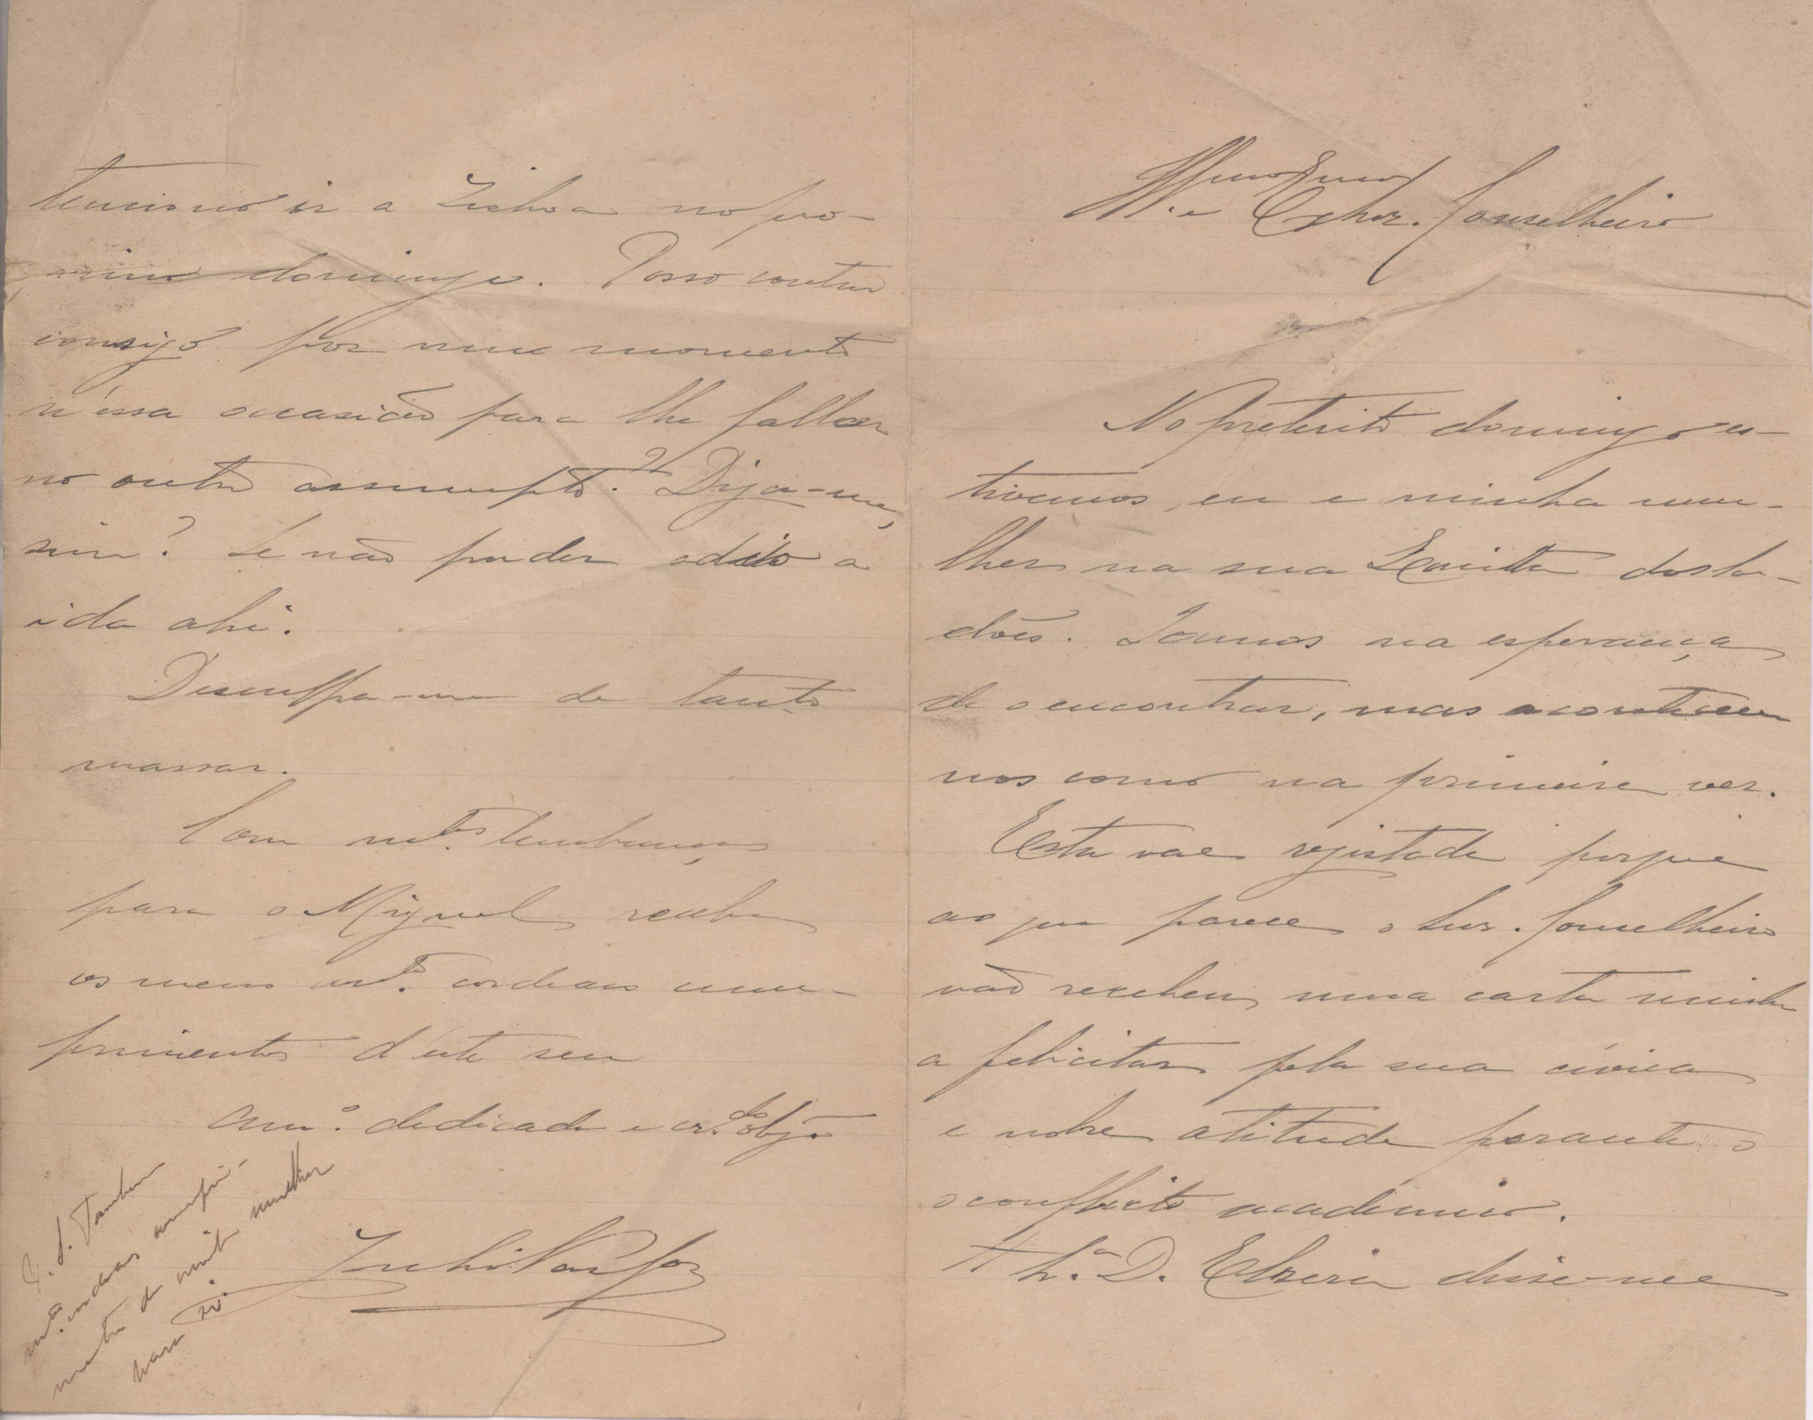 Illmo e Exmo Snr. Conselheiro
No preterito domingo es-
tivemos, eu e minha mu-
lher na sua Quinta dos La-
dões. Iamos na esperança
de o encontrar, mas aconteceu
nos como na primeira vez.
Esta vae registada porque
ao que parece o Snr. Conselheiro
não recebeu uma carta minha
a felicitar pela sua civica
e nobre atitude perante o
o conflicto academico.
A Sr.ª D. Elzira disse-me
tenciona ir a Lisboa no pro-
ximo domingo. Posso contar
consigo por um momento
n'essa occasião para lhe fallar
no outro assumpto? Diga-me,
sim? Se não puder adio a
ida ahi.
Desculpa-me de tanto
massar.
Com mtas lembranças
para o Miguel receba
os meus mtos cordeaes cum-
primentos d'este seu
Amº. dedicado e crdo obgo
P. S. Tambem
mtos cordeaes cumpri-
mentos de minha mulher
para si.